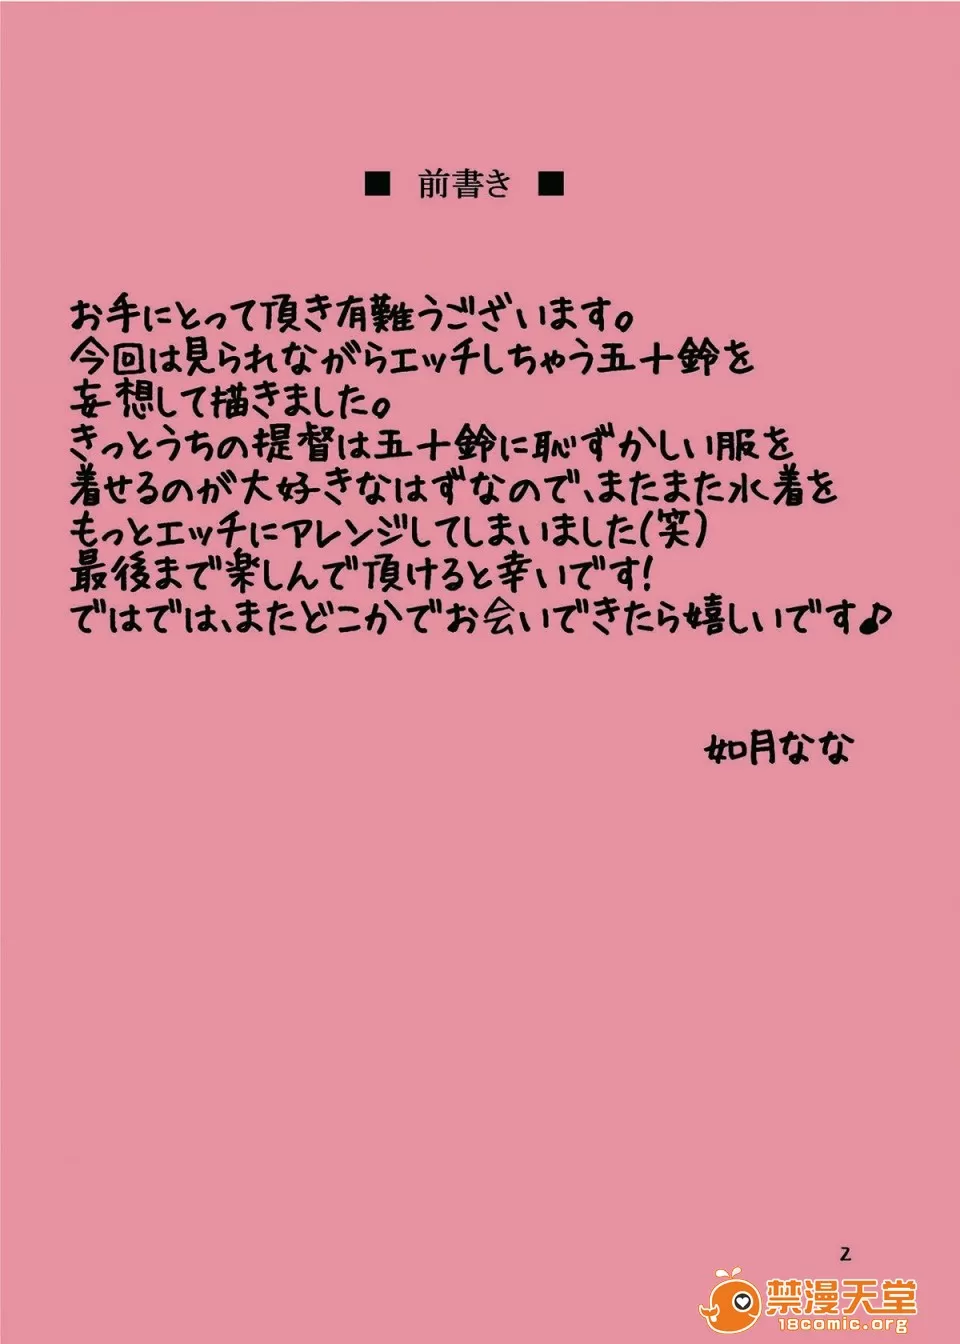 ■ 前書き ■
お手にとって頂き有難うございます。
今回は見られながらエッチしちゃう五十鈴を
妄想して描きました。
きっとうちの提督は五十鈴に恥ずかしい服を
着せるのが大好きなはずなので、またまた水着を
もっとエッチにアレンジしてしまいました(笑)
最後まで楽しんで頂けると幸いです!
ではでは、またどこかでお会いできたら嬉しいです♪
如月なな
2
禁漫天堂
18comic.org